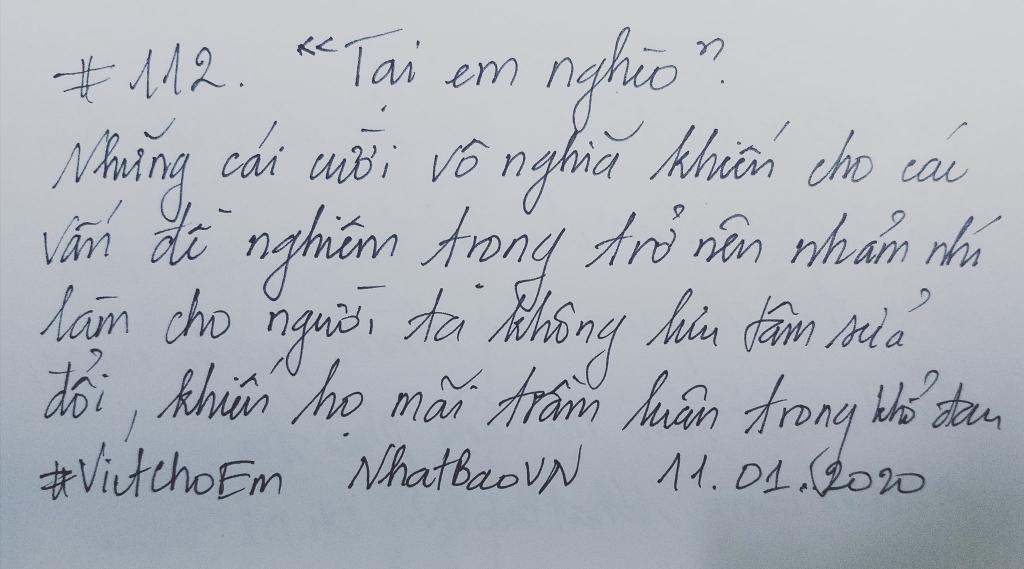 #112. "Tại em nghèo".
Những cái cười vô nghĩa khiến cho các
vấn đề nghiêm trọng trở nên nhảm nhí
làm cho người ta không lưu tâm sửa
đổi, khiến họ mãi trầm luân trong khổ đau
#ViếtchoEm NhatBaoVN 11.01.2020